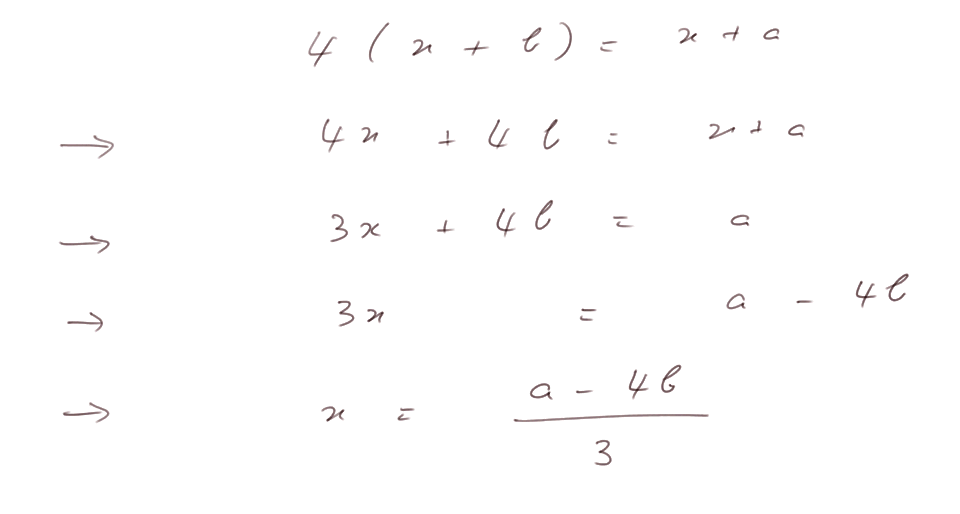 4 ( x + b ) = x + a
→ 4x + 4b = x + a
→ 3x + 4b = a
→ 3x = a - 4b
→ x = \frac{a - 4b}{3}